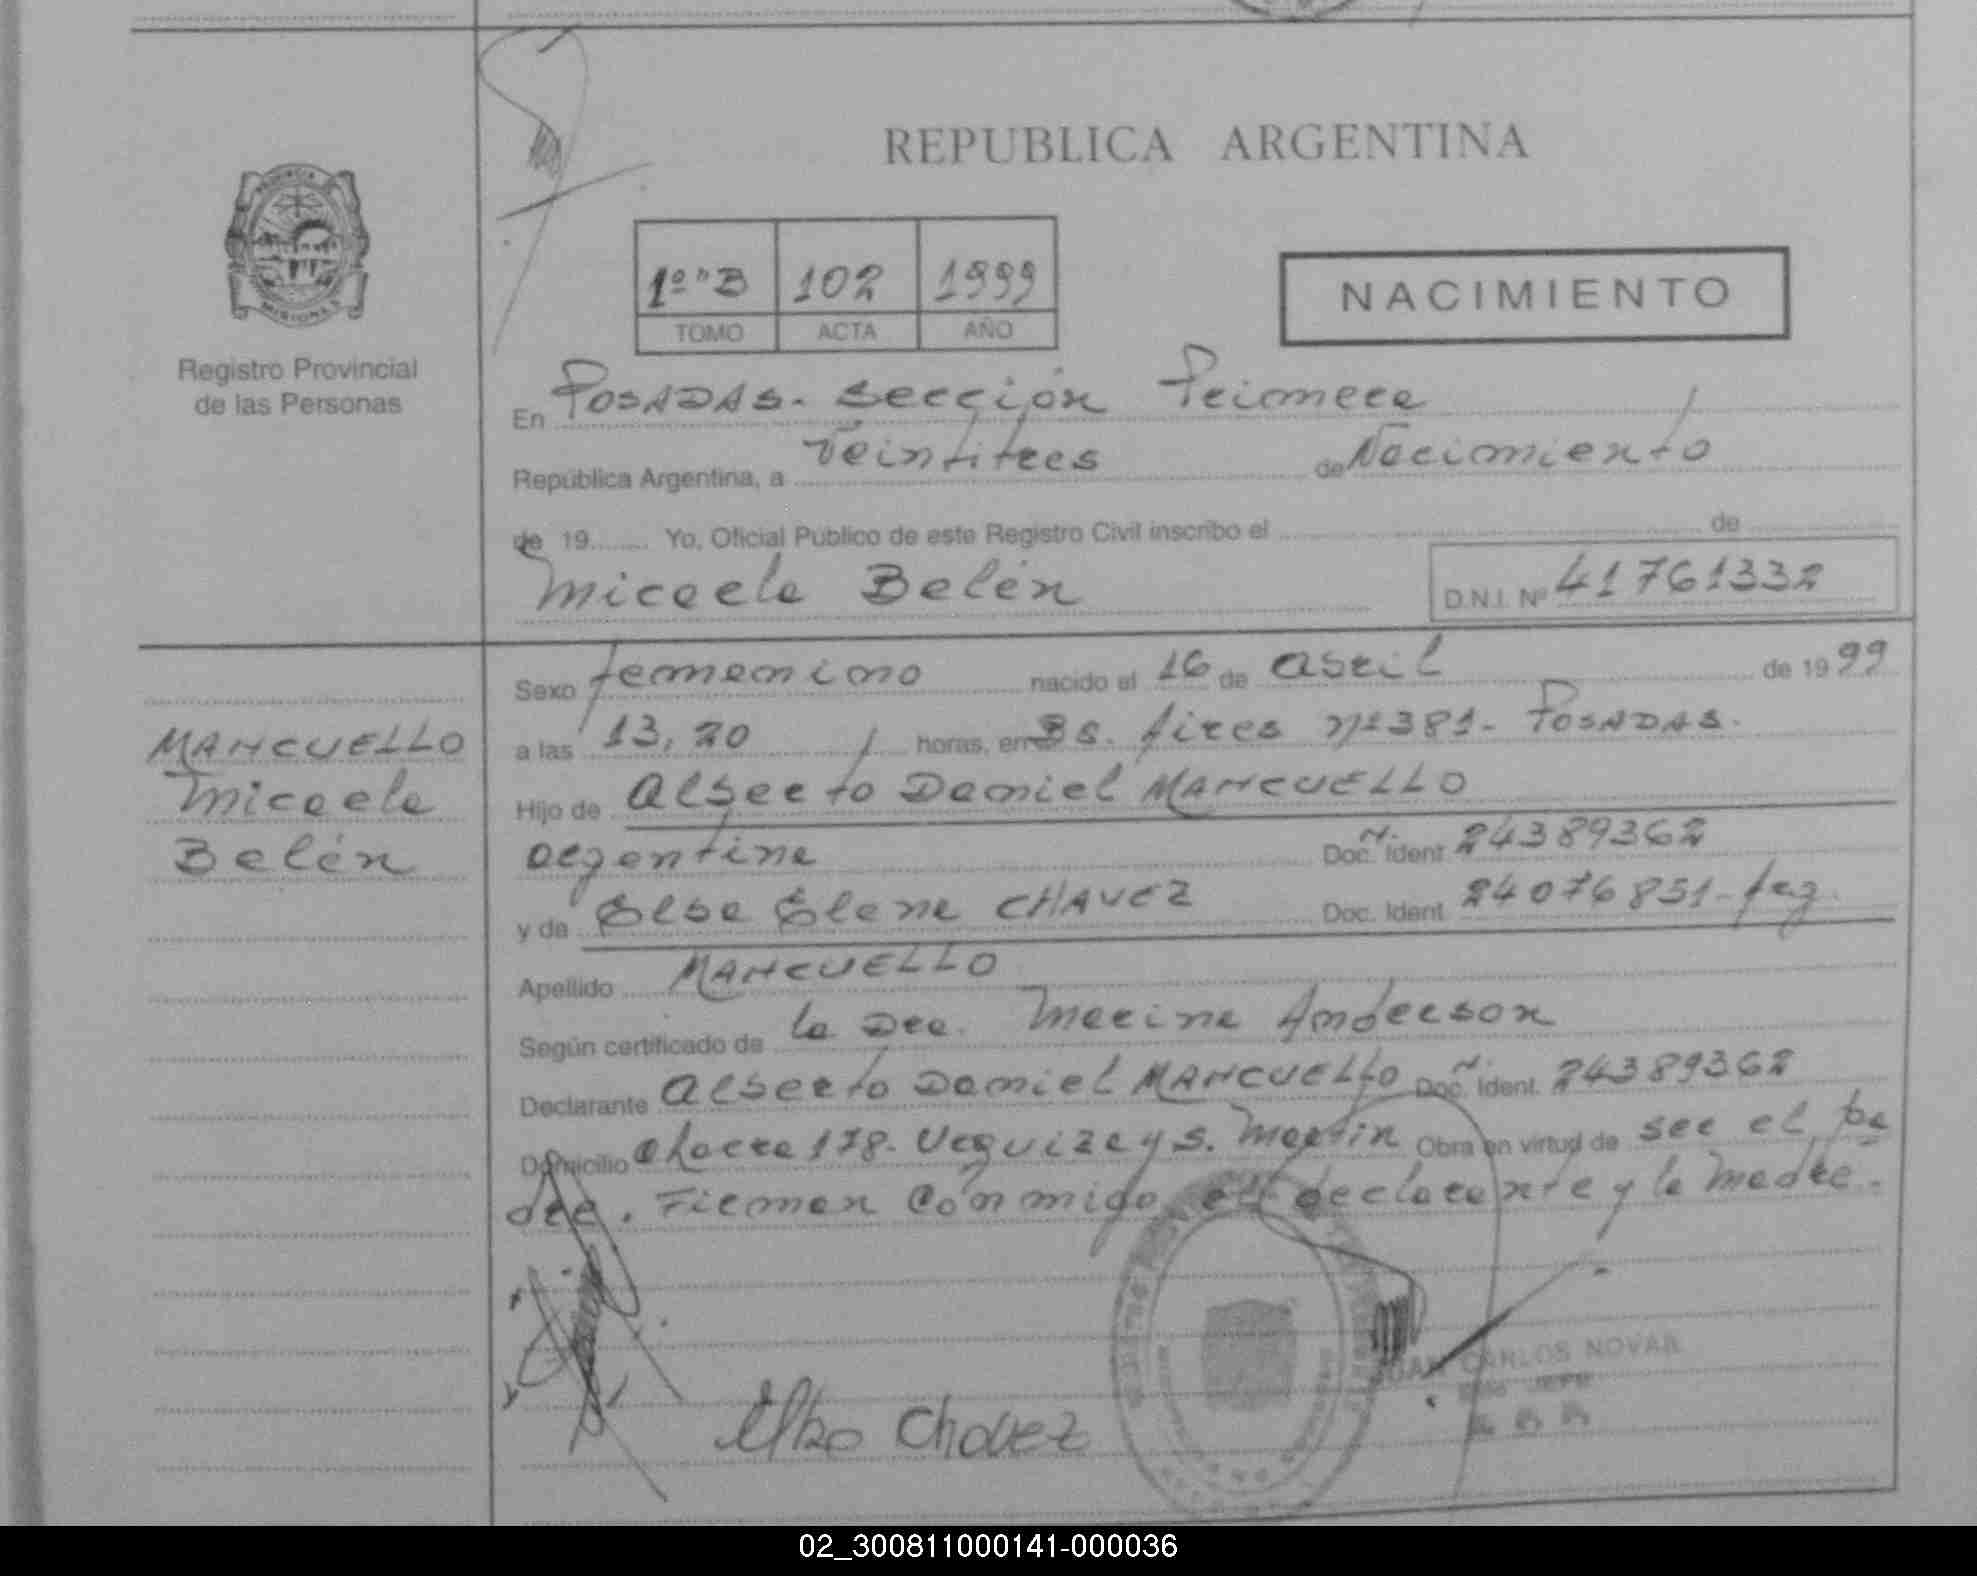 REPUBLICA ARGENTINA
PROVINCIA
MISIONES
Registro Provincial
de las Personas
1º "B 102 1999
TOMO ACTA AÑO
NACIMIENTO
En POSADAS. Sección Primera
República Argentina, a Veintitres de Nacimiento
de 19 Yo, Oficial Público de este Registro Civil inscribo el de
Micaela Belén D.N.I. Nº 41761332
MANCUELLO
Micaela
Belén
Sexo femenino nacido el 16 de abril de 1999
a las 13,20 horas, en Bs. Aires nº 381- POSADAS.
Hijo de Alberto Daniel MANCUELLO
argentina Doc. Ident. 24389362
y de Elba Elena CHAVEZ Doc. Ident. 24076851-
Apellido MANCUELLO
Según certificado de la Dra. Marina Anderson
Declarante Alberto Daniel MANCUELLO Doc. Ident. 24389362
Domicilio Chacra 178. Urquiza y S. Martin Obra en virtud de ser el pa
dre. Firman conmigo el declarante y la madre.
Elba Chavez
JUAN CARLOS NOVAR
JEFE
02_300811000141-000036